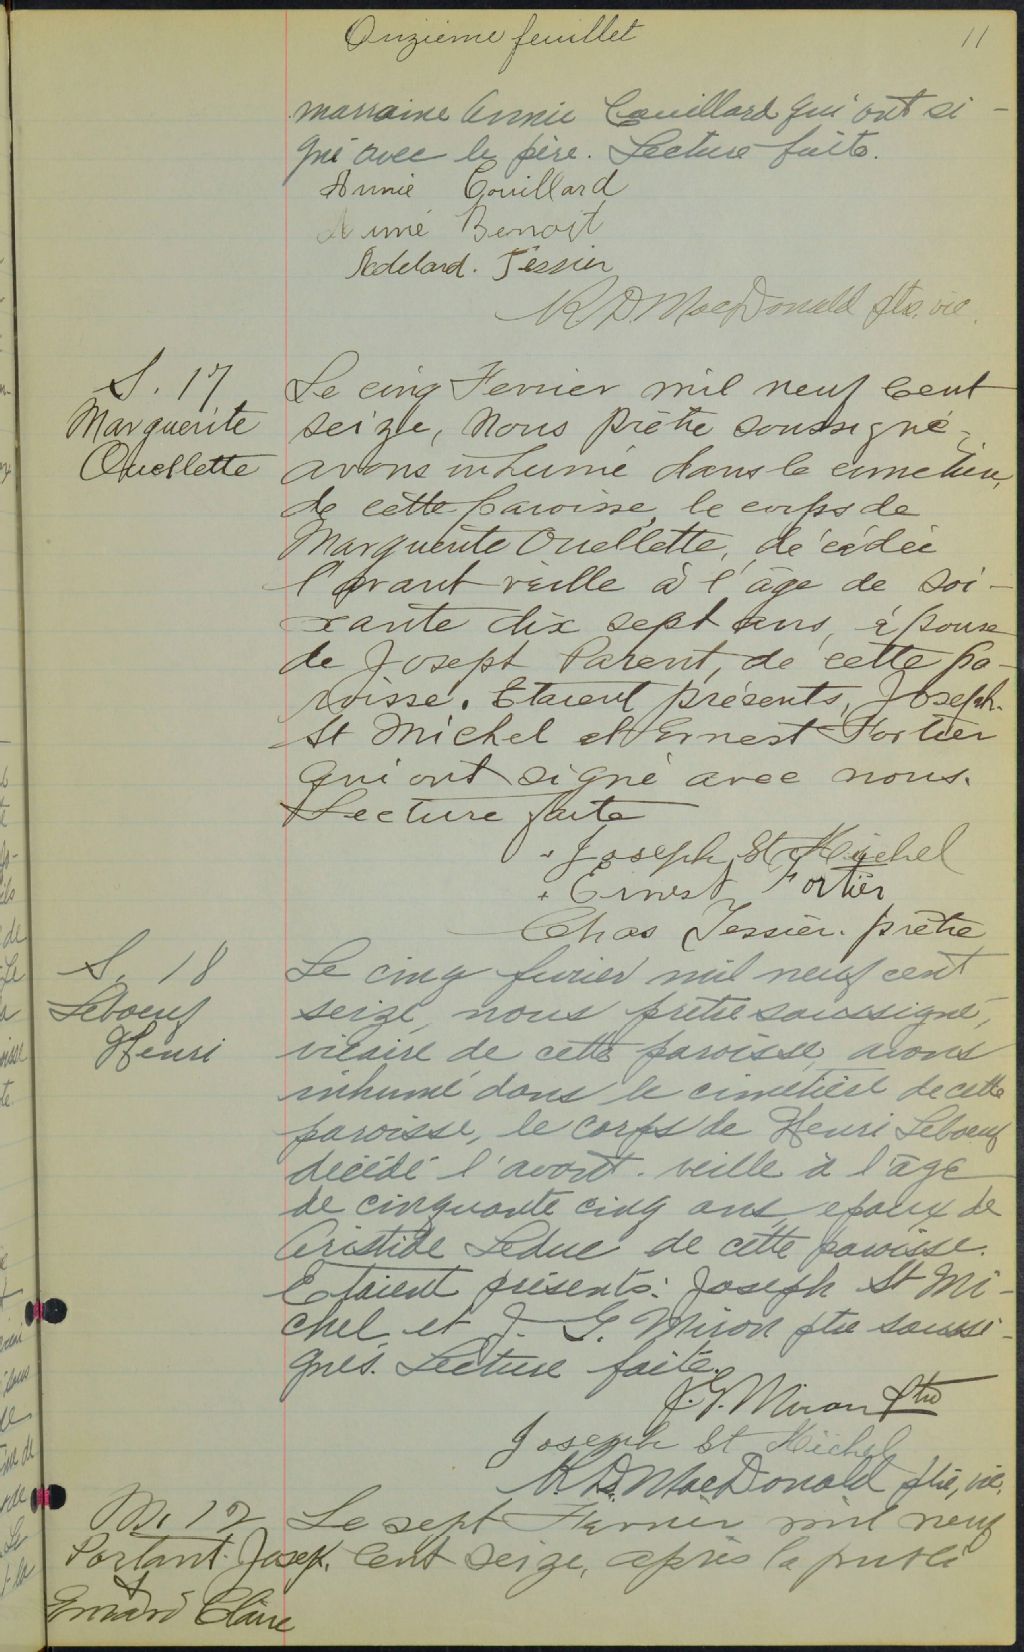 Onzieme feuillet 11
marraine Annie Couillard qui ont si-
gné avec le père. Lecture faite.
Annie Couillard
Aimé Benoit
Adelard. Tessier
K D MacDonald ptre. vic.
S. 17
Marguerite
Ouellette
Le cinq Fevrier mil neuf Cent
seize, Nous prêtre soussigné,
avons inhumé dans le cimetière
de cette paroisse, le corps de
Marguerite Ouellette, décédée
l'avant veille à l'âge de soi-
xante dix sept ans, épouse
de Joseph Parent, de cette pa-
roisse. Etaient présents, Joseph
St Michel et Ernest Fortier
qui ont signé avec nous.
Lecture faite
Joseph St Michel
Ernest Fortier
Chas Tessier. prêtre
S. 18
Leboeuf
Henri
Le cinq fevrier mil neuf cent
seize, nous prêtre soussigné,
vicaire de cette paroisse, avons
inhumé dans le cimetière de cette
paroisse, le corps de Henri Leboeuf
décédé l'avant-veille à l'âge
de cinquante cinq ans, epoux de
Aristide Leduc de cette paroisse.
Etaient présents: Joseph St Mi-
chel et J. G. Miron ptre soussi-
gnés. Lecture faite.
J. G. Miron Ptre
Joseph St Michel
K. D. MacDonald ptre, vic.
M. 12
Portant. Josep.
&
Emard Claire
Le sept Fevrier mil neuf
Cent seize, après la publi